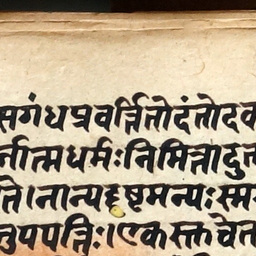 सगंधप्रवर्त्तितोदंतोदक
र्नात्मधर्मः निमित्तादुत्त
ते।नान्यदृष्टमन्यः स्म
नुपपत्तिः।एकस्त्कवेत